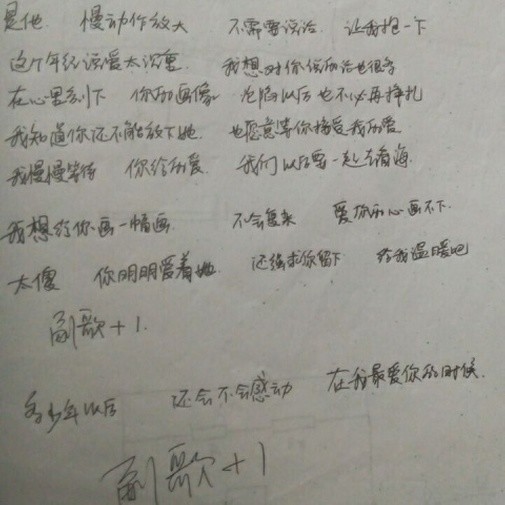 是他 慢动作放大 不需要说话 让我抱一下
这个年纪说爱太沉重 我想对你说的话也很多
在心里刻下 你的画像 沦陷以后也不必再挣扎
我知道你还不能放下她 也愿意等你接受我的爱
我慢慢等待 你给的爱 我们以后要一起去看海
我想给你画一幅画 不会复来 爱你的心画不下
太傻 你明明爱着她 还强求你留下 给我温暖吧
副歌+1.
多少年以后 还会不会感动 在我最爱你的时候
副歌+1